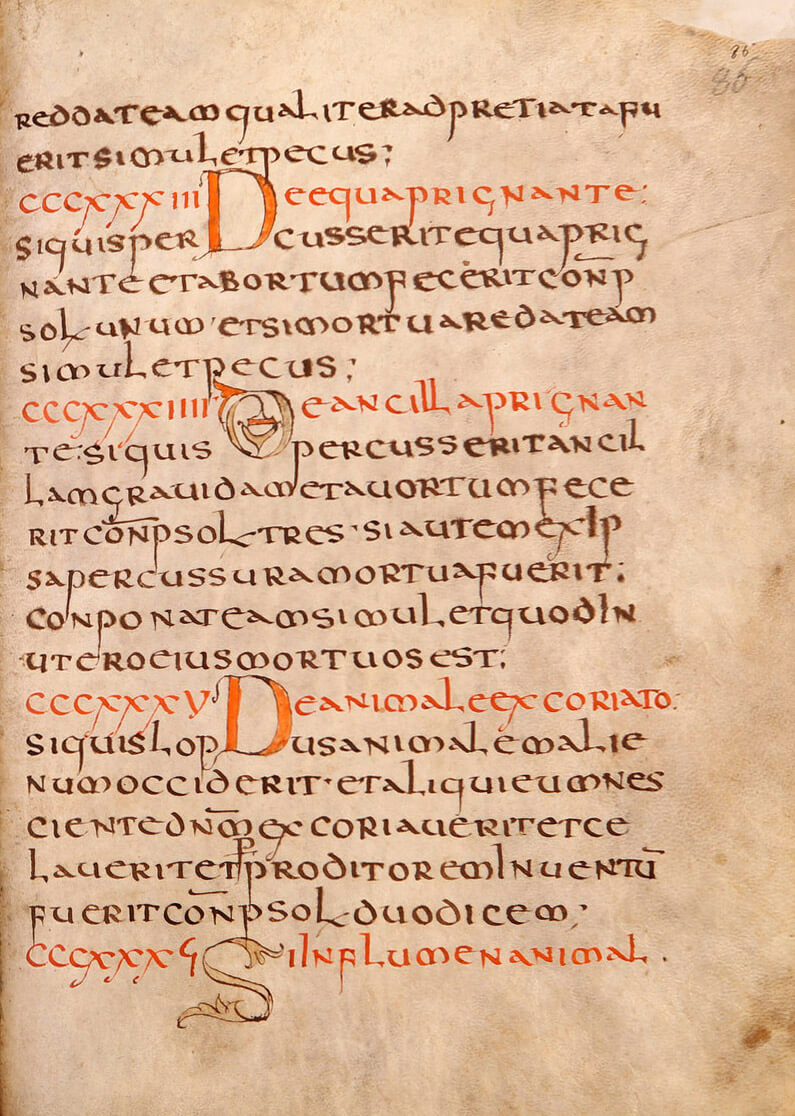 86
86
reddat eam qualiter adpretiata fu
erit simul et pecus;
CCCXXXIII De equa prignante:
Si quis percusserit equa prig
nante et abortum fecerit conp
sol unum et si mortua redat eam
simul et pecus;
CCCXXXIIII De ancilla prignan
te: Si quis percusserit ancil
lam gravidam et avortum fece
rit conp sol tres · si autem ex ip
sa percussura mortua fuerit;
conponat eam simul et quod in
utero eius mortuos est;
CCCXXXV De animale excoriato:
Si quis lopdus animalem alie
num occiderit · et aliqui eum nes
ciente dnm excoriaverit et ce
laverit et proditorem inventū
fuerit conp sol duodicem;
CCCXXXϛ Si in flumen animal .